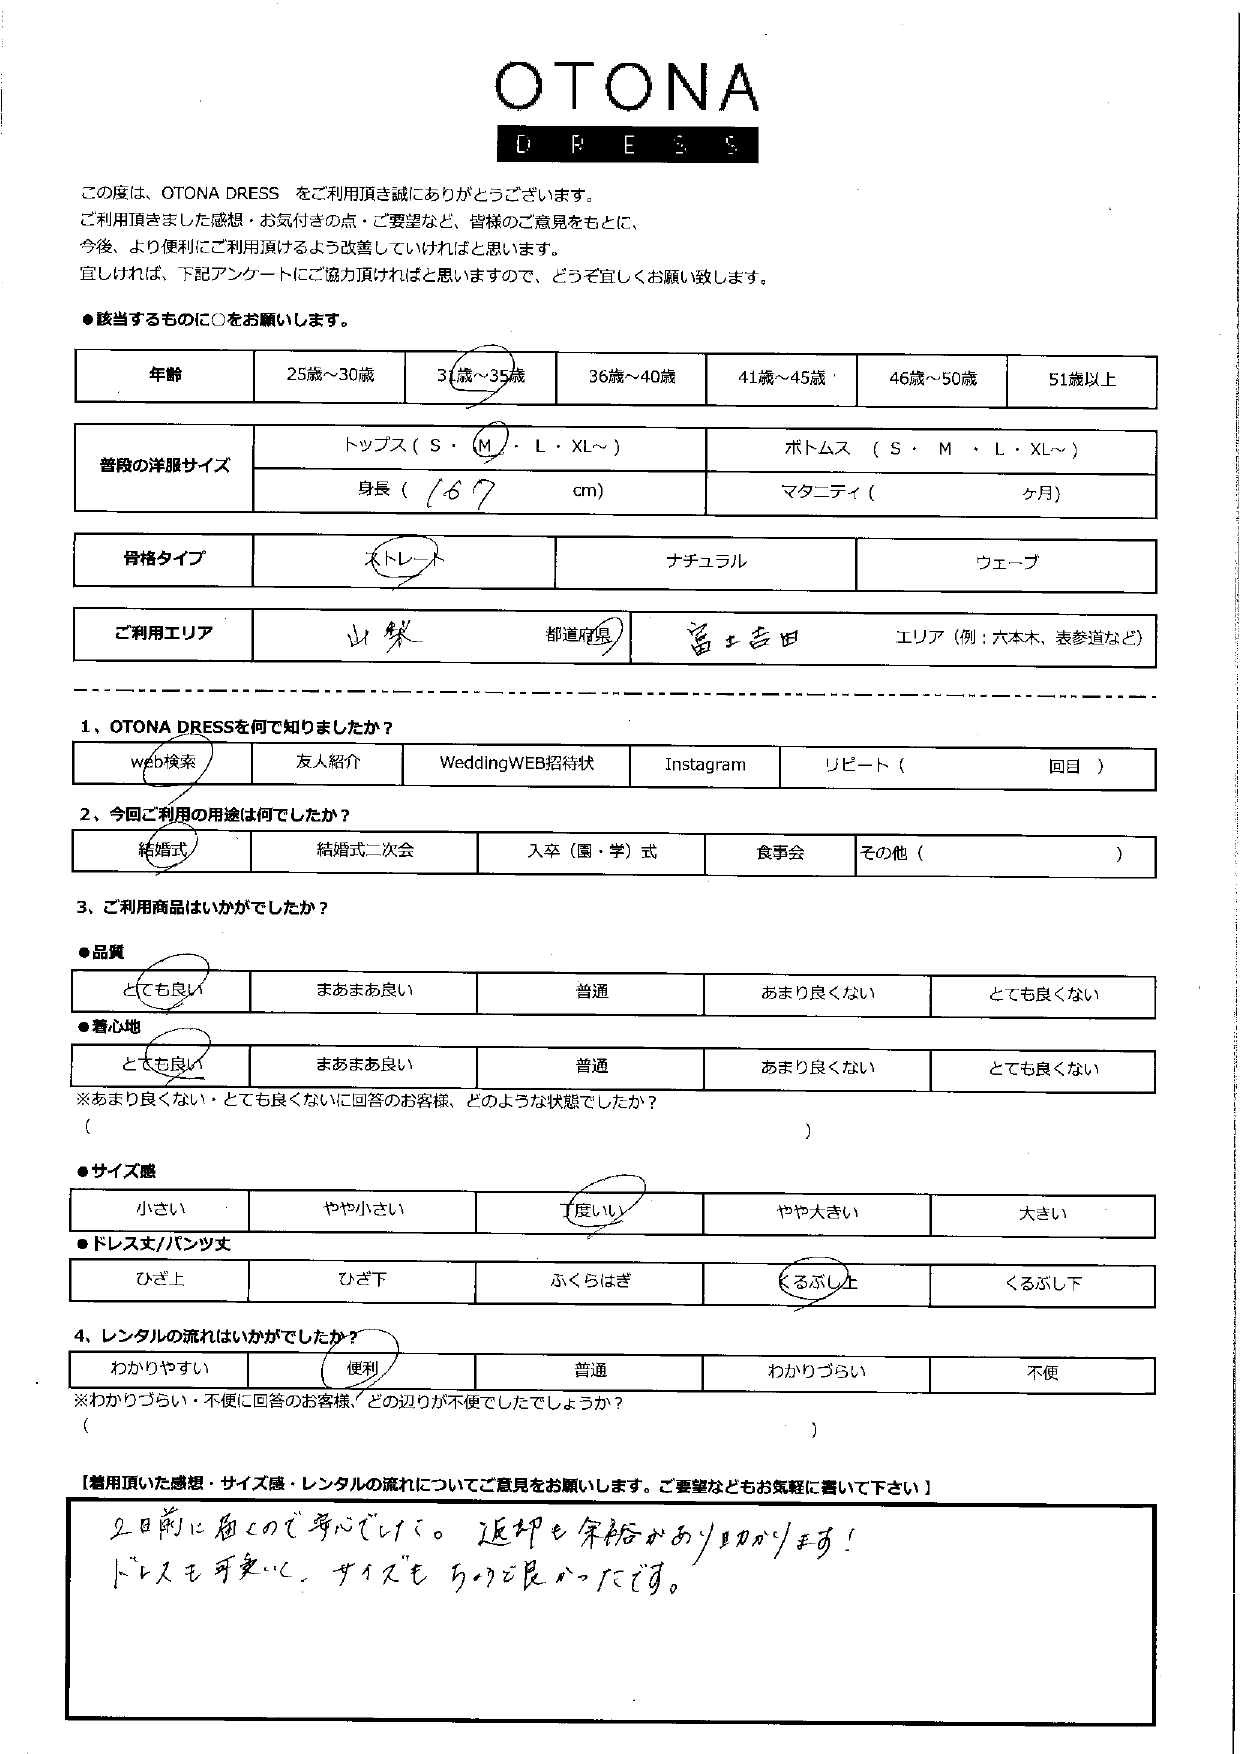 OTONA
DRESS
この度は、OTONA DRESS をご利用頂き誠にありがとうございます。
ご利用頂きました感想・お気付きの点・ご要望など、皆様のご意見をもとに、
今後、より便利にご利用頂けるよう改善していければと思います。
宜しければ、下記アンケートにご協力頂ければと思いますので、どうぞ宜しくお願い致します。
●該当するものに○をお願いします。
年齢 25歳～30歳 31歳～35歳 36歳～40歳 41歳～45歳 46歳～50歳 51歳以上
普段の洋服サイズ トップス ( S ・ M ・ L ・ XL～ ) ボトムス ( S ・ M ・ L ・ XL～ )
身長 ( 167 cm) マタニティ ( ヶ月)
骨格タイプ ストレート ナチュラル ウェーブ
ご利用エリア 山梨 都道府県 富士吉田 エリア（例：六本木、表参道など）
1、OTONA DRESSを何で知りましたか？
web検索 友人紹介 WeddingWEB招待状 Instagram リピート ( 回目 )
2、今回ご利用の用途は何でしたか？
結婚式 結婚式二次会 入卒（園・学）式 食事会 その他 ( )
3、ご利用商品はいかがでしたか？
●品質
とても良い まあまあ良い 普通 あまり良くない とても良くない
●着心地
とても良い まあまあ良い 普通 あまり良くない とても良くない
※あまり良くない・とても良くないに回答のお客様、どのような状態でしたか？
( )
●サイズ感
小さい やや小さい 丁度いい やや大きい 大きい
●ドレス丈/パンツ丈
ひざ上 ひざ下 ふくらはぎ くるぶし上 くるぶし下
4、レンタルの流れはいかがでしたか？
わかりやすい 便利 普通 わかりづらい 不便
※わかりづらい・不便に回答のお客様、どの辺りが不便でしたでしょうか？
( )
【着用頂いた感想・サイズ感・レンタルの流れについてご意見をお願いします。ご要望などもお気軽に書いて下さい】
2日前に届くので安心でした。返却も余裕があり助かります！
ドレスも可愛いく、サイズもちょうど良かったです。